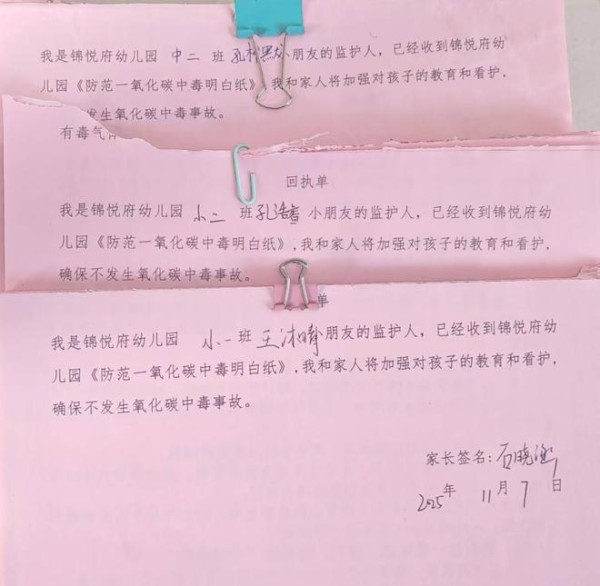 我是锦悦府幼儿园 中二 班 孔 小朋友的监护人，已经收到锦悦府幼
儿园《防范一氧化碳中毒明白纸》，我和家人将加强对孩子的教育和看护，
发生氧化碳中毒事故。
有毒气
回执单
我是锦悦府幼儿园 小二 班 孔浩 小朋友的监护人，已经收到锦悦府幼
儿园《防范一氧化碳中毒明白纸》，我和家人将加强对孩子的教育和看护，
确保不发生氧化碳中毒事故。
单
我是锦悦府幼儿园 小一班 王沐晴 朋友的监护人，已经收到锦悦府幼
儿园《防范一氧化碳中毒明白纸》，我和家人将加强对孩子的教育和看护，
确保不发生氧化碳中毒事故。
家长签名：石晓
2025年 11月 7日